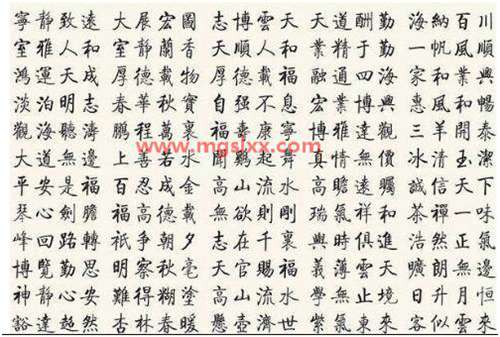 寧靜致遠 大展宏圖 志博雲天 天道酬勤 海納百川
室雅人和 室靜蘭香 大順人和 業精于勤 一帆風順
鴻運天成 厚德載物 厚德載福 融通四海 家和業興
淡泊明志 春華秋實 自强不息 宏業博興 惠風和暢
觀海聽濤 鵬程萬裏 福壽康寧 博雅達觀 三羊開泰
大道無邊 上善若水 聞鷄起舞 真情無價 冰清玉潔
平安是福 百忍成金 高山流水 高瞻遠矚 誠信天下
琴心劍膽 福高德載 無欲則剛 瑞氣祥和 茶禪一味
峰回路轉 祇爭朝夕 志在千裏 與時俱進 浩然正氣
博覽勤思 明察秋毫 天官賜福 義薄雲天 曠朗無邊
神靜心安 難得糊塗 高山流水 學無止境 日升月恒
豁達超然 杏林春暖 懸壺濟世 紫氣東來 客似雲來
www.mgslxx.com